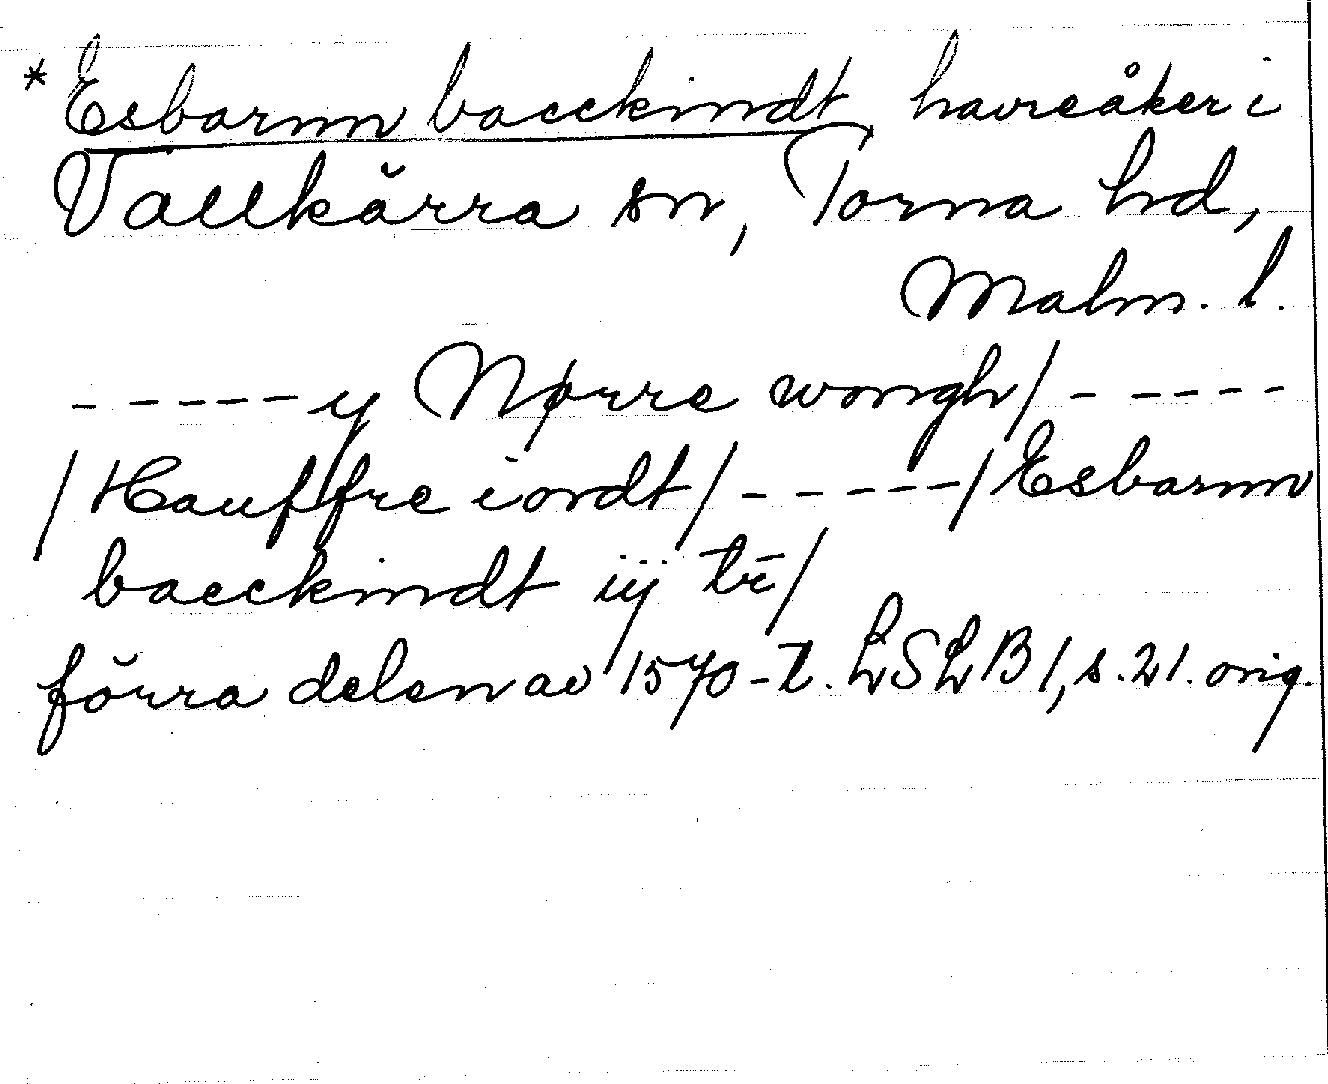 * Esbarnn bacckindt, havreåker i
Vallkärra sn, Torna hd,
Malm. l.
-----y Nørre wongh/-----
/Hauffre iordt/-----/Esbarnn
bacckindt iij tr/
förra delen av 1570-t. LSLB 1, s. 21. orig.